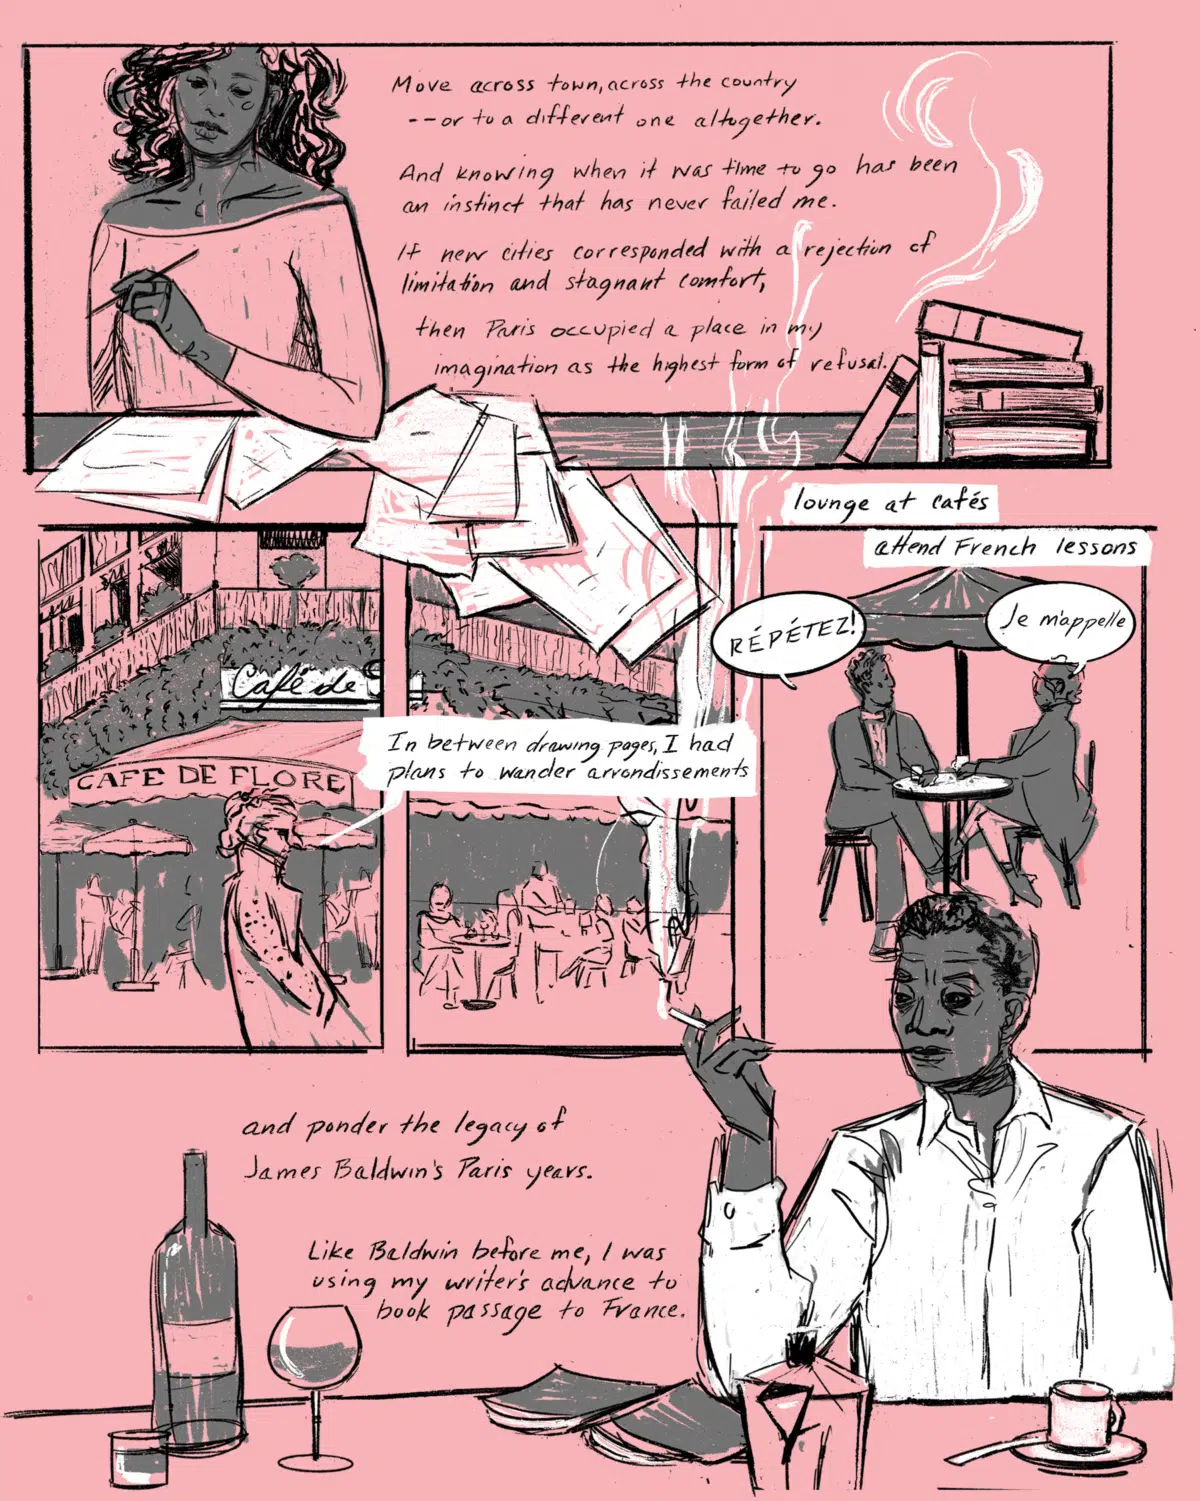 Move across town, across the country
--or to a different one altogether.
And knowing when it was time to go has been
an instinct that has never failed me.
If new cities corresponded with a rejection of
limitation and stagnant comfort,
then Paris occupied a place in my
imagination as the highest form of refusal.
Café de
CAFE DE FLORE
In between drawing pages, I had
plans to wander arrondissements
lounge at cafés
attend French lessons
RÉPÉTEZ!
Je m'appelle
and ponder the legacy of
James Baldwin's Paris years.
Like Baldwin before me, I was
using my writer's advance to
book passage to France.